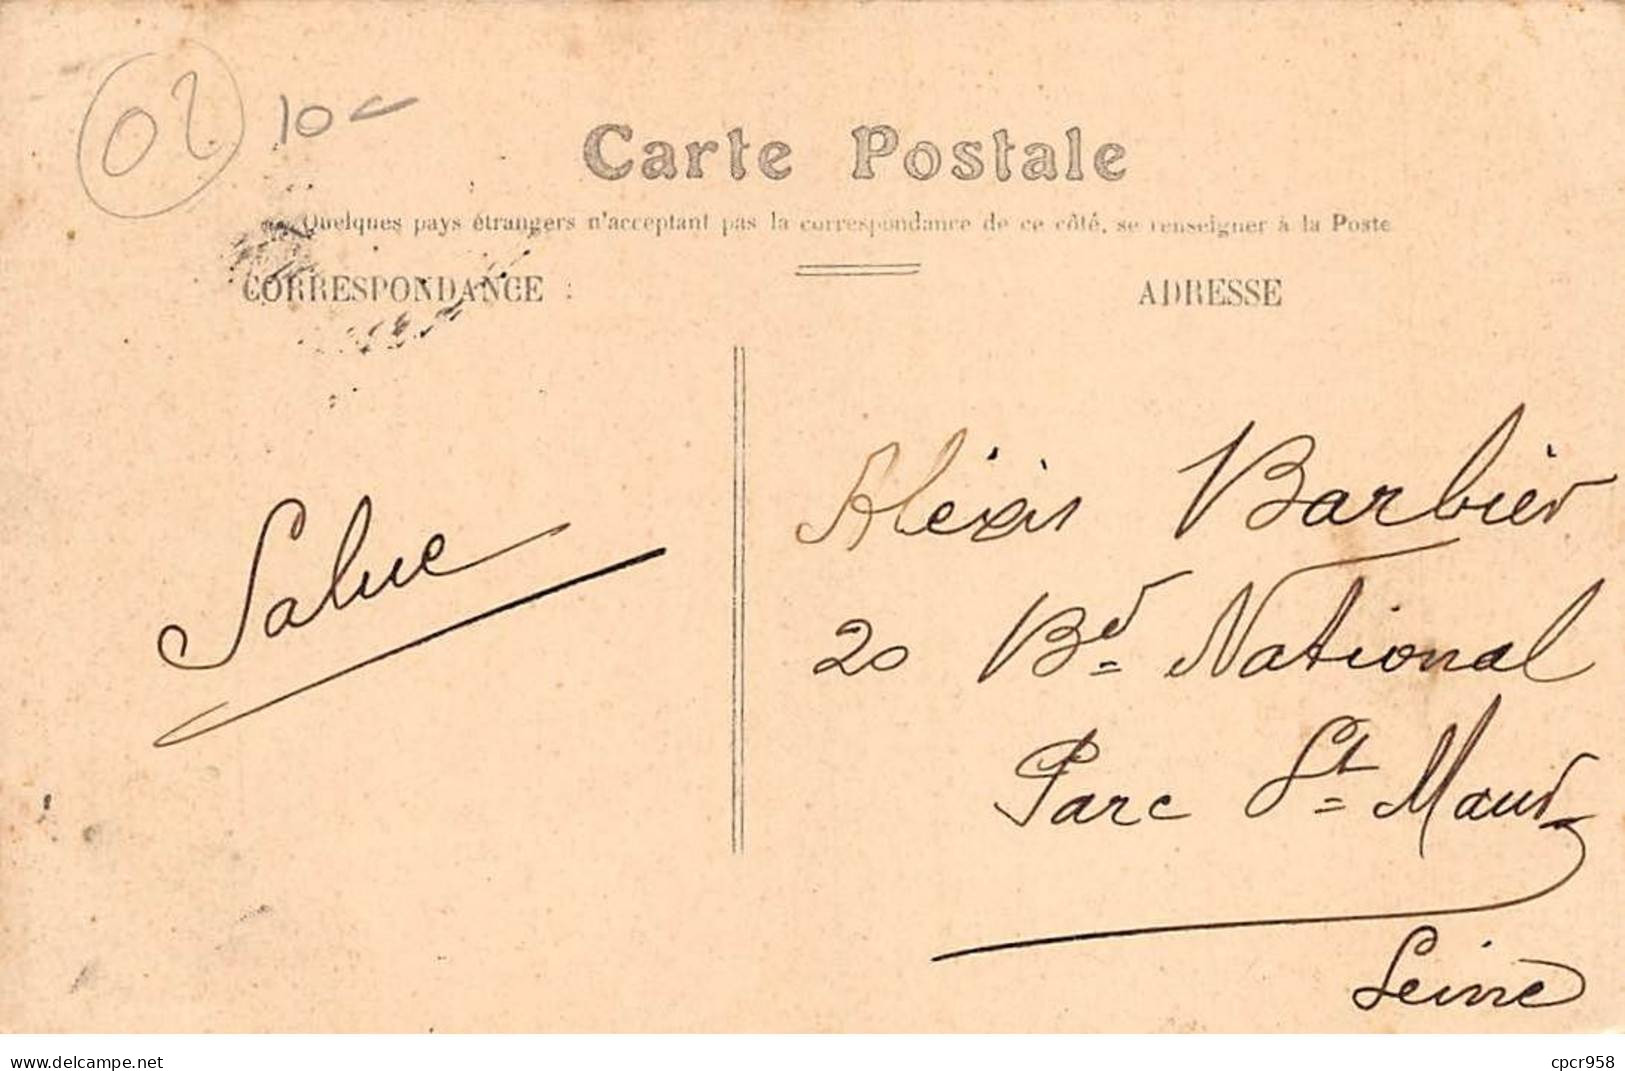 02 10
Carte Postale
Quelques pays étrangers n'acceptant pas la correspondance de ce côté, se renseigner à la Poste
CORRESPONDANCE : ADRESSE
Salue
Aléxis Barbier
20 Bd National
Parc St Maur
Seine
www.delcampe.net cpcr958